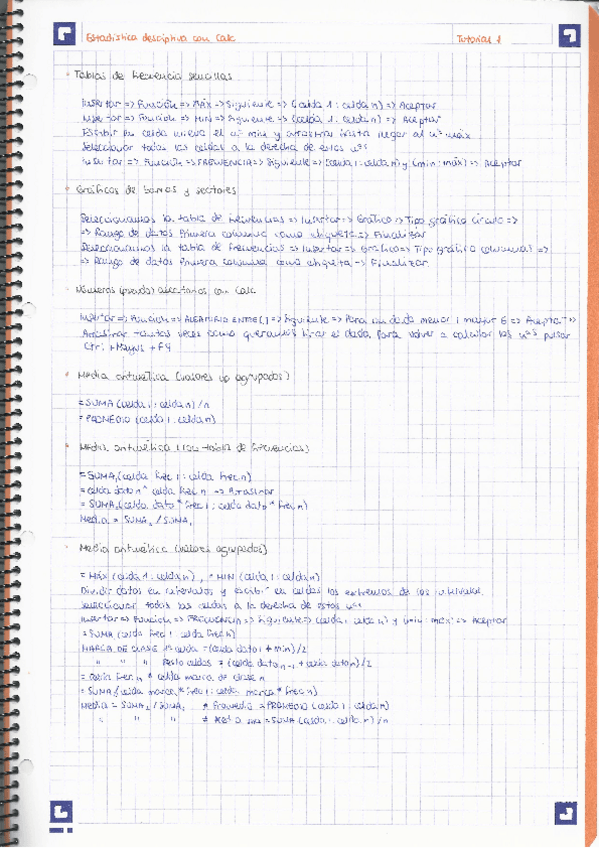 Estadística descriptiva con Calc
Tutorial 1
Tablas de frecuencia sencillas
Insertar => Función => Máx -> Siguiente => (celda 1 : celda n) => Aceptar
Insertar => Función => MIN => Siguiente => (celda 1 : celda n) => Aceptar
Escribir en celda nueva el nº min y arrastrar hasta llegar al nº máx
Seleccionar todas las celdas a la derecha de estos nºs
Insertar => Función => FRECUENCIA => Siguiente => (celda 1 : celda n) y (min : máx) => Aceptar
Gráficos de barras y sectores
Seleccionamos la tabla de frecuencias => Insertar -> Gráfico -> Tipo gráfico círculo =>
=> Rango de datos Primera columna como etiqueta => Finalizar
Seleccionamos la tabla de frecuencias => Insertar => Gráfico => Tipo gráfico columnas =>
=> Rango de datos Primera columna como etiqueta -> Finalizar.
Números (pseudo) aleatorios con Calc
Insertar => Función => ALEATORIO.ENTRE() => Siguiente => Para un dado menor 1 mayor 6 => Aceptar =>
Arrastrar tantas veces como queramos tirar el dado. Para volver a calcular los nºs pulsar
Ctrl + Mayus + F9
Media aritmética (valores no agrupados)
= SUMA (celda 1 : celda n) / n
= PROMEDIO (celda 1 : celda n)
Media aritmética (con tabla de frecuencias)
= SUMA₁ (celda frec 1 : celda frec n)
= celda dato n * celda frec n => Arrastrar
= SUMA₂ (celda dato * frec 1 : celda dato * frec n)
Media = SUMA₂ / SUMA₁
Media aritmética (valores agrupados)
= Máx (celda 1 : celda n), = MIN (celda 1 : celda n)
Dividir datos en intervalos y escribir en celdas los extremos de los intervalos
Seleccionar todas las celdas a la derecha de estos nºs
Insertar => Función => FRECUENCIA => Siguiente => (celda 1 : celda n) y (min : máx) => Aceptar
= SUMA (celda frec 1 : celda frec n)
MARCA DE CLASE 1ª celda = (celda dato 1 + min) / 2
" " " Resto celdas = (celda dato n-1 + celda dato n) / 2
= celda frec n * celda marca de clase n
= SUMA₂ (celda marca * frec 1 : celda marca * frec n)
Media = SUMA₂ / SUMA₁ ≠ Promedio = PROMEDIO (celda 1 : celda n)
" " " ≠ Media = SUMA (celda 1 : celda n) / n